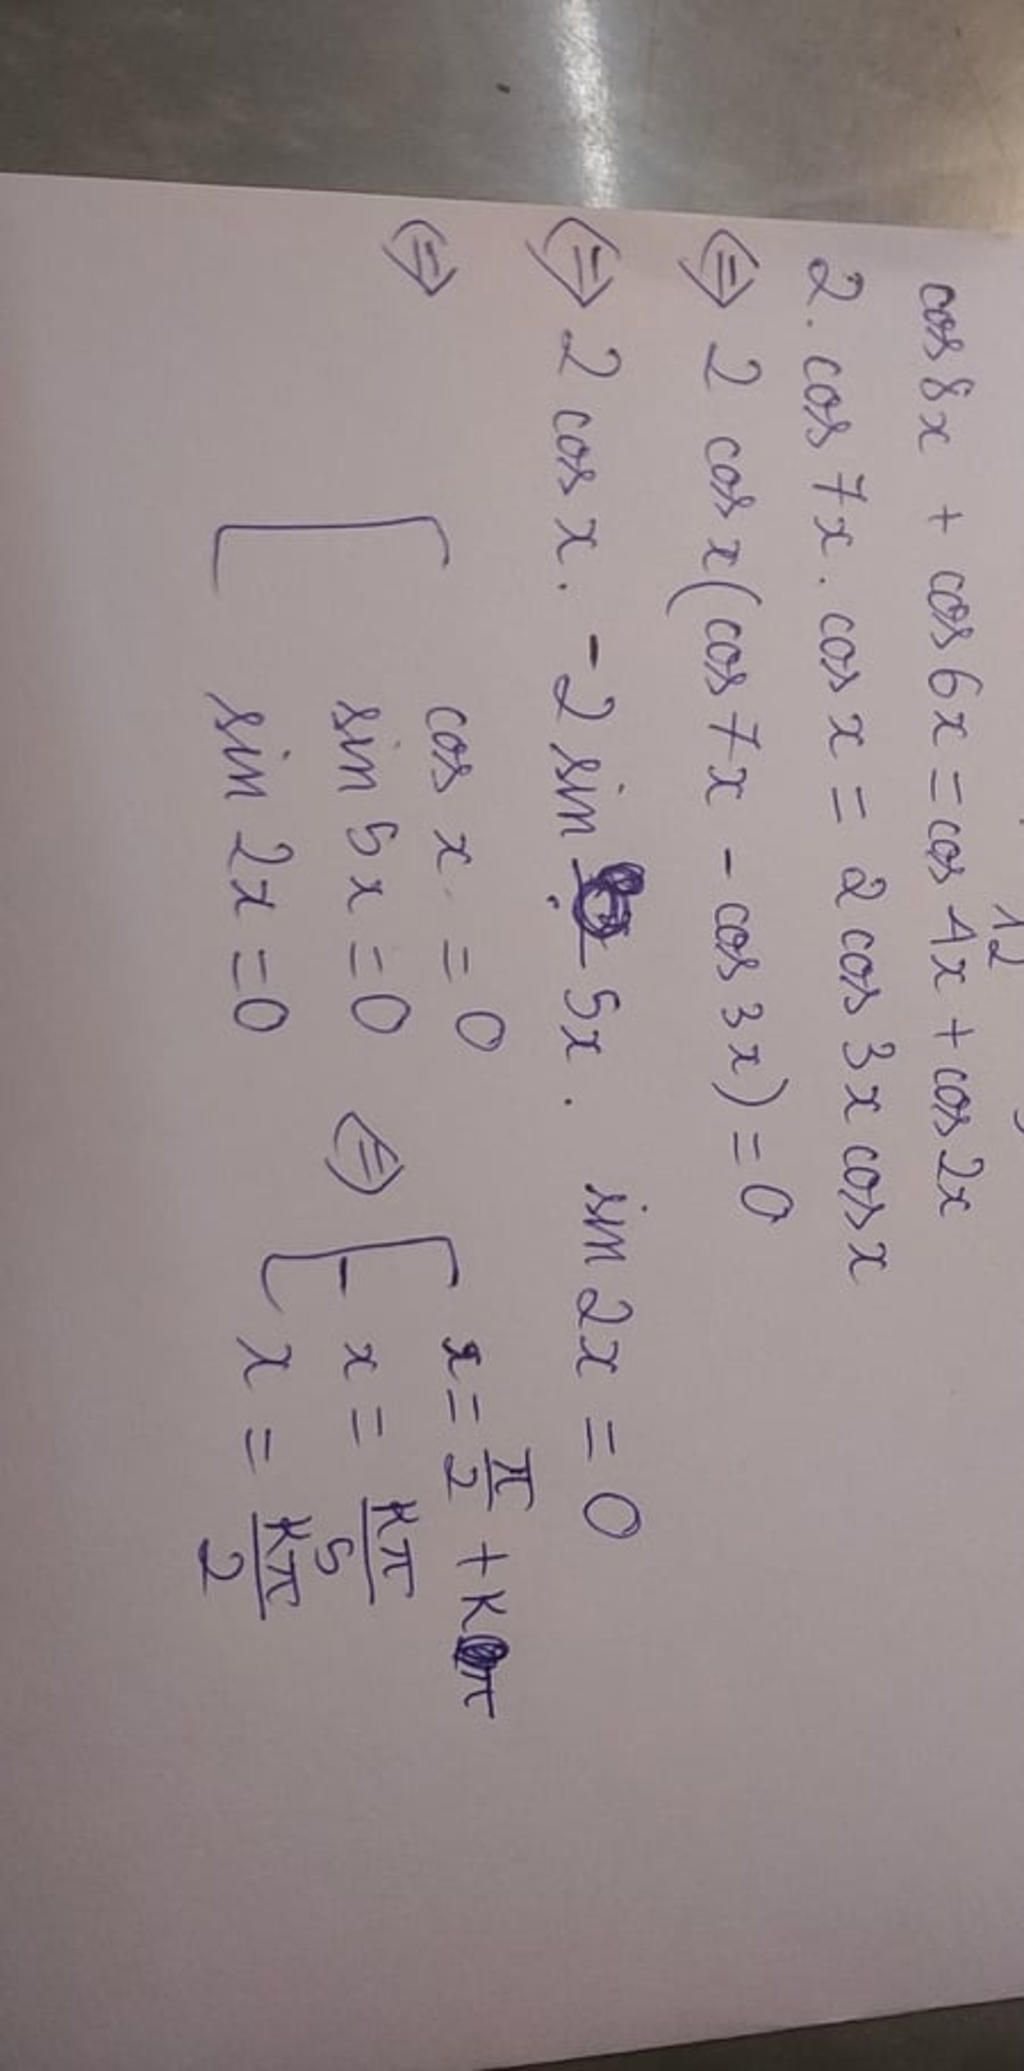 12
cos 8x + cos 6x = cos 4x + cos 2x
2. cos 7x . cos x = 2 cos 3x cos x
⇔ 2 cos x (cos 7x - cos 3x) = 0
⇔ 2 cos x . - 2 sin 5x . sin 2x = 0
⇔ [ cos x = 0
sin 5x = 0 ⇔ [ x = π/2 + kπ
sin 2x = 0 x = kπ/5
x = kπ/2